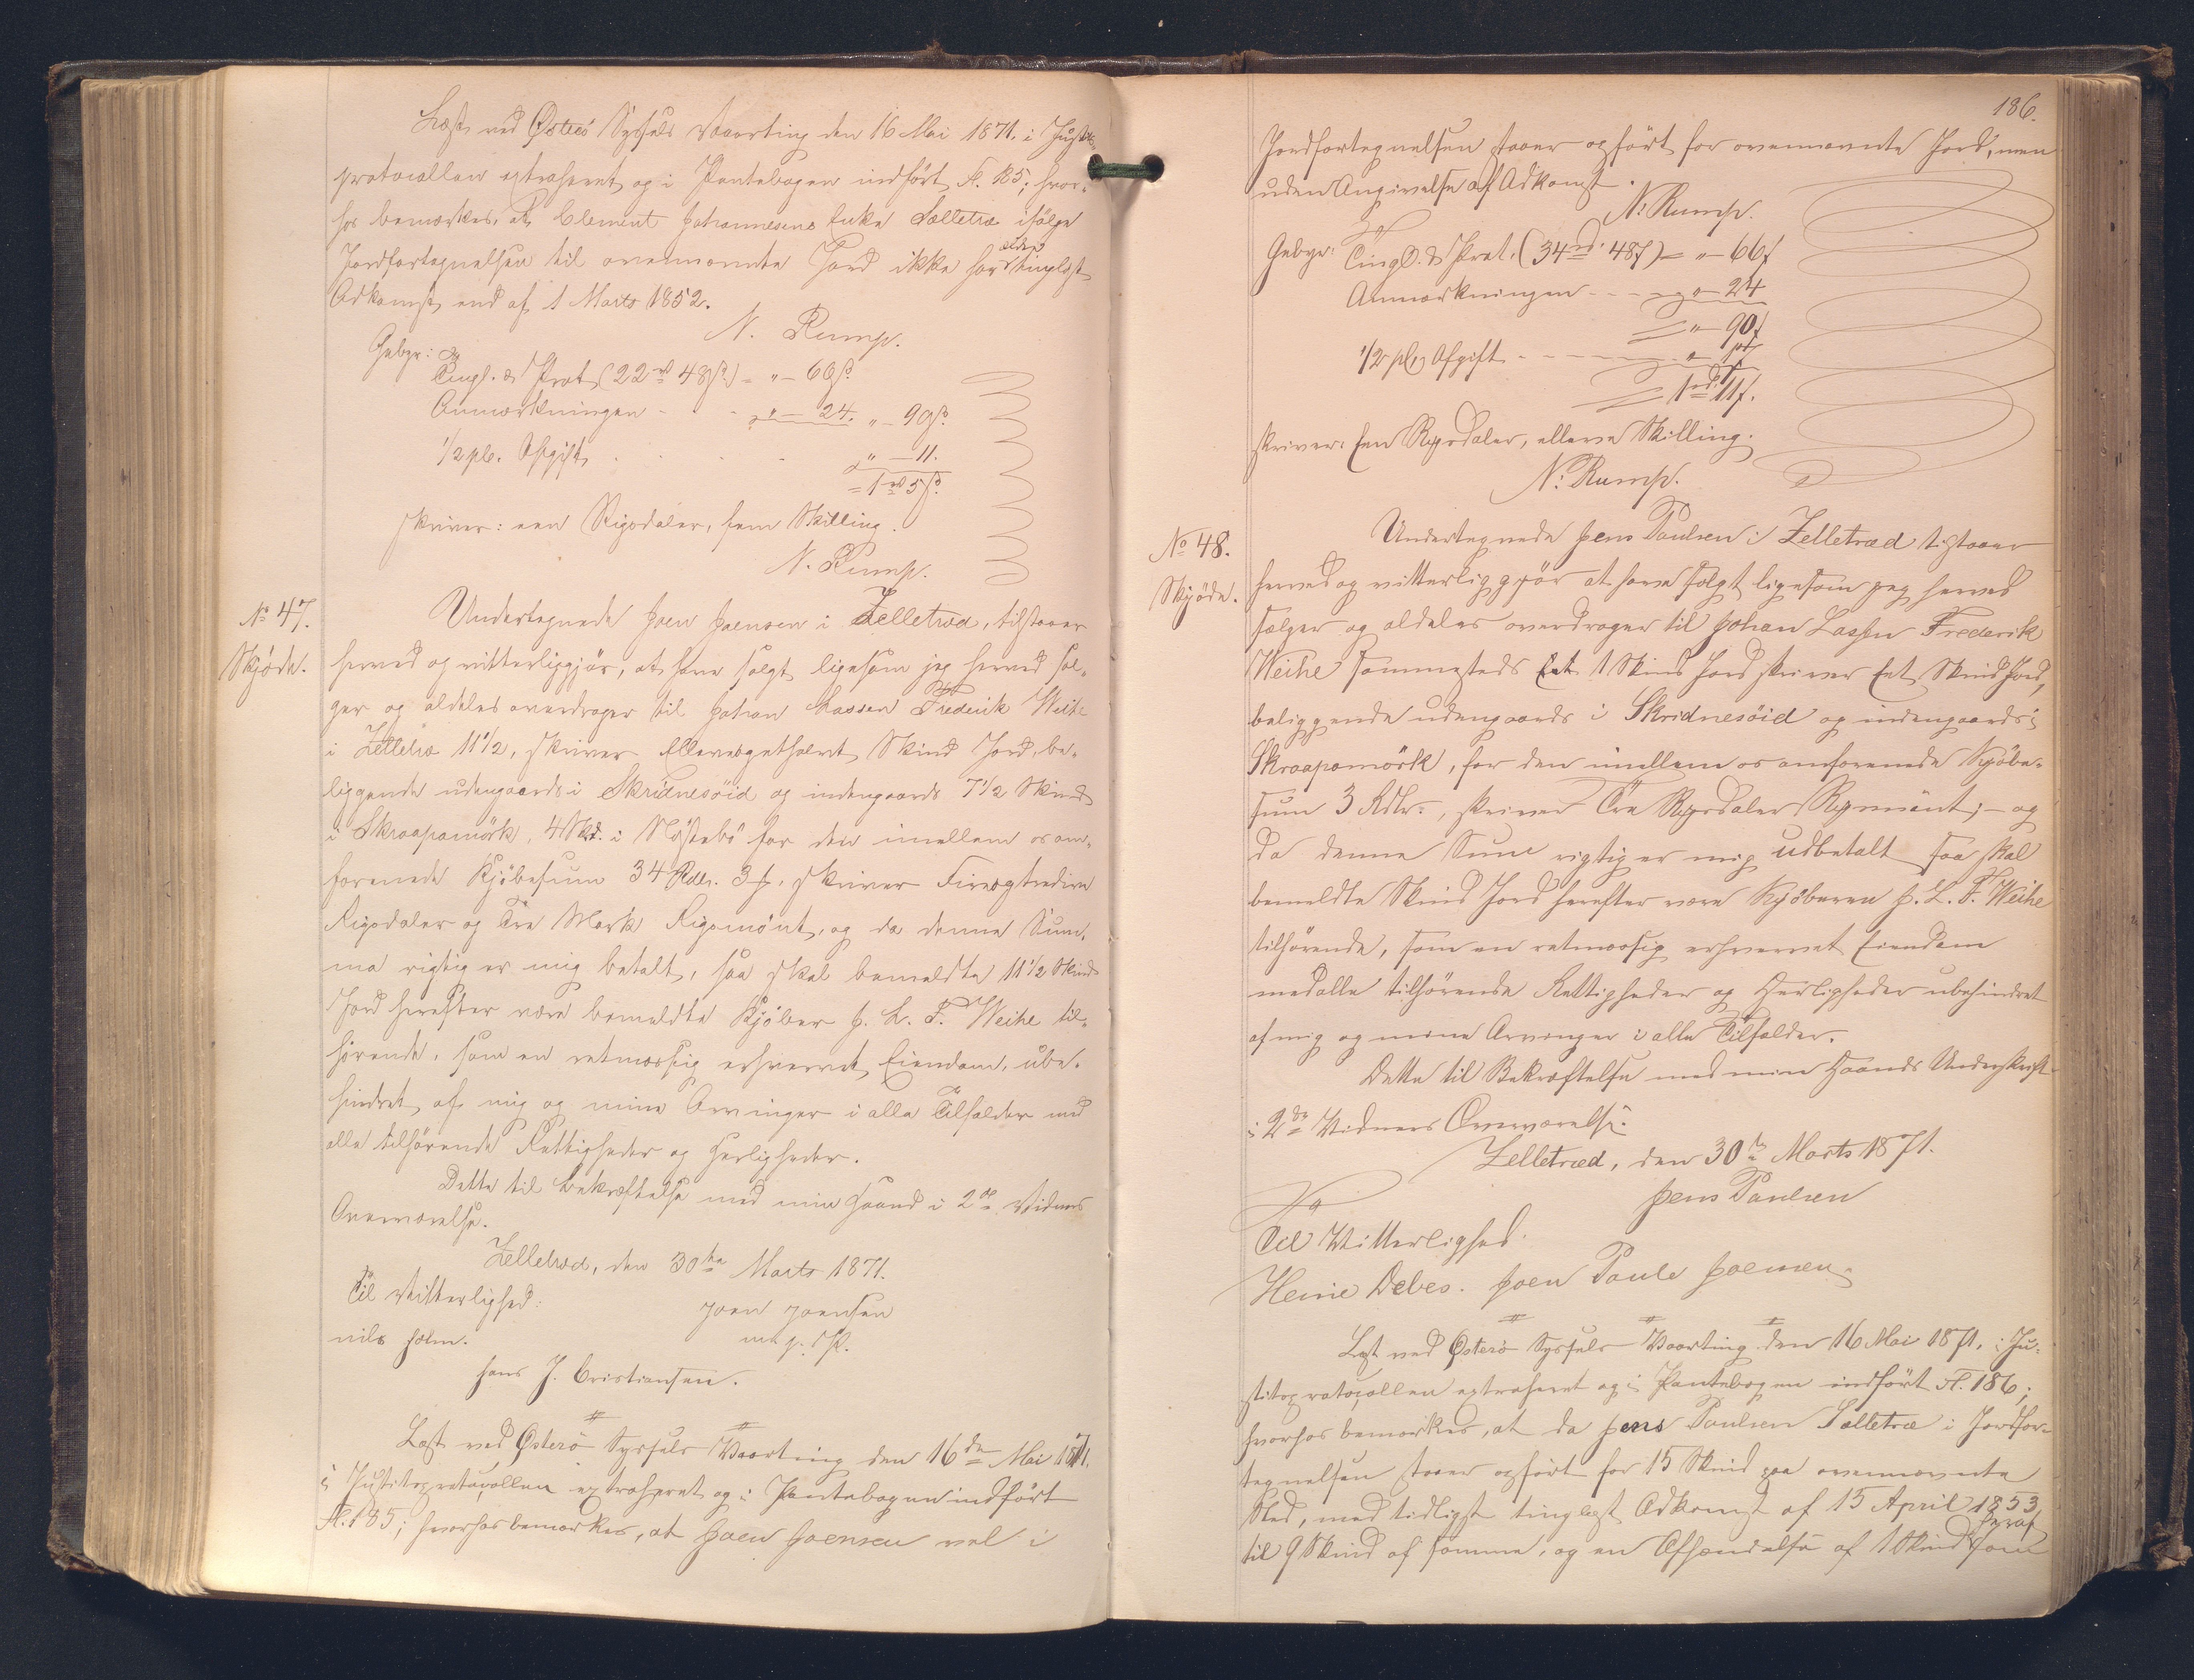 Læst ved Østerö Sysfels Vaarting den 16 Mai 1871. i Justits
protocollen extraheret og i Pantebogen indfört Fl. 185; hvor-
hos bemærkes, at Clement Johannesens Enke Sælletræ ifölge
Jordfortegnelsen til ovennævnte Jord ikke har ældre tinglæst
Adkomst end af 1 Marts 1852.
N. Rump.
Gebyr:
Tingl. & Prot. (22 rd 48 ß) = " – 66 ß
Anmærkningen - - " – 24. " – 90 ß
1/2 pCt. Afgift . . . . " – 11.
= 1 rd 5 ß
skriver: een Rigsdaler, fem Skilling.
N. Rump.
No 47.
Skjöde.
Undertegnede Joen Joensen i Zelletræd, tilstaaer
herved og vitterliggjör, at have solgt ligesom jeg herved sæl-
ger og aldeles overdrager til Johan Lassen Frederik Weihe
i Zelletræ 11 1/2, skriver Elleveogethalvt Skind Jord, be-
liggende udengaards i Skridnesöid og indengaards 7 1/2 Skind
i Skraapamörk, 4 Skd. i for den imellem os om-
forenede Kjöbesum 34 Rdlr. 3 , skriver Fireogtredive
Rigsdaler og Tre Mark Rigsmönt, og da denne Sum-
ma rigtig er mig betalt, saa skal bemeldte 11 1/2 Skind
Jord herefter være bemeldte Kjöber J. L. F. Weihe til-
hörende, som en retmæssig erhvervet Eiendom, ube-
hindret af mig og mine Arvinger i alle Tilfælder med
alle tilhörende Rettigheder og Herligheder.
Dette til Bekræftelse med min Haand i 2de Vidners
Overværelse.
Zelletræd, den 30te Marts 1871.
Til Vitterlighed:
joen joensen
nils holm.
m. p. P.
hans J. Cristiansen.
Læst ved Österö Sysfels Vaarting den 16de Mai 1871.
i Justitsprotocollen extraheret og i Pantebogen indfört
Fl. 185; hvorhos bemærkes, at Joen Joensen vel i
186.
Jordfortegnelsen staaer opfört for ovennævnte Jord, men
uden Angivelse af Adkomst.
N. Rump.
Gebyr: Tingl. & Prot. (34 rd 48 ß) = " – 66 ß
Anmærkningen - - - " – 24
" – 90 ß
1/2 pCt Afgift - - - - " – 17
1 rd 11 ß.
skriver: Een Rigsdaler, elleve Skilling.
N. Rump.
No 48.
Skjöde.
Undertegnede Jens Paulsen i Zelletræd tilstaaer
herved og vitterliggjör at have solgt ligesom jeg herved
sælger og aldeles overdrager til Johan Lassen Frederik
Weihe sammesteds Et 1 Skind Jord skriver Et Skind Jord,
beliggende udengaards i Skridnesöid og indengaards i
Skraapamörk, for den imellem os omforenede Kjöbe-
sum 3 Rdlr., skriver Tre Rigsdaler Rigsmönt, – og
da denne Sum rigtig er mig udbetalt saa skal
bemeldte Skind Jord herefter være Kjöberen J. L. F. Weihe
tilhörende, som en retmæssig erhvervet Eiendom
med alle tilhörende Rettigheder og Herligheder ubehindret
af mig og mine Arvinger i alle Tilfælder.
Dette til Bekræftelse med min Haands Underskrift
i 2de Vidners Overværelse.
Zelletræd, den 30te Marts 1871.
Jens Paulsen
Til Vitterlighed.
Heine Debes. Joen Paule Joensen.
Læst ved Österö Sysfels Vaarting den 16 Mai 1871. i Ju-
stitsprotocollen extraheret og i Pantebogen indfört Fl. 186;
hvorhos bemærkes, at da Jens Paulsen Sælletræ i Jordfor-
tegnelsen staaer opfört for 15 Skind paa ovennævnte
Sted, med tidligst tinglæst Adkomst af 15 April 1853
til 9 Skind af samme, og en Afhændelse af 1 Skind heraf som